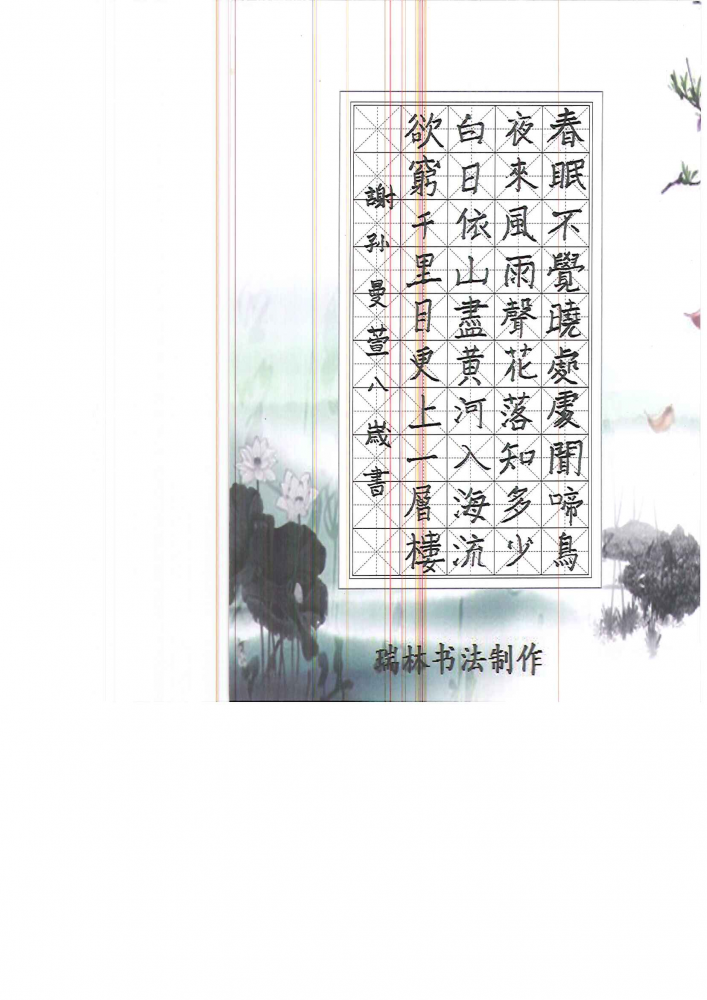 春眠不覺曉處處聞啼鳥
夜來風雨聲花落知多少
白日依山盡黄河入海流
欲窮千里目更上一層樓
謝孙曼萱八歲書
瑞林书法制作